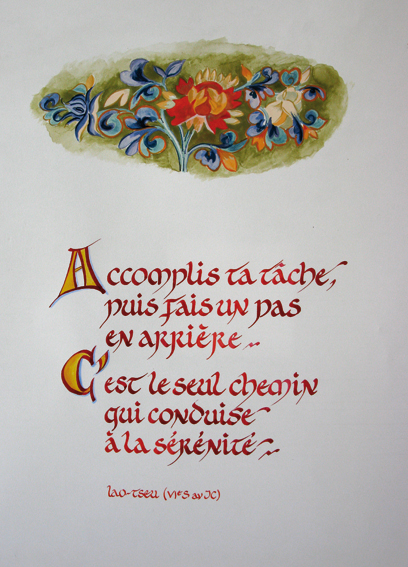 Accomplis ta tâche,
puis fais un pas
en arrière..
C'est le seul chemin
qui conduise
à la sérénité..
lao-tseu (VIe S av JC)